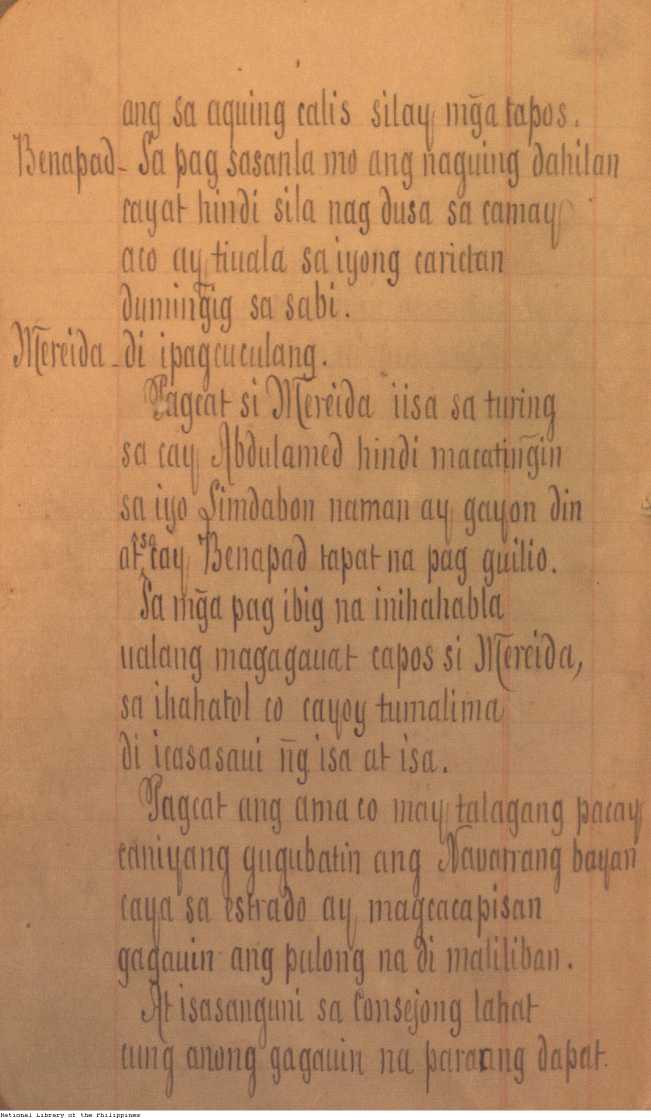 ang sa aquing calis silay mg̃a tapos.
Benapad - Sa pag sasanla mo ang naguing dahilan
cayat hindi sila nag dusa sa camay
aco ay tiuala sa iyong carictan
duming̃ig sa sabi.
Mereida - di ipagcuculang.
Pagcat si Mereida iisa sa turing
sa cay Abdulamed hindi macating̃in
sa iyo Limdabon naman ay gayon din
at sa cay Benapad tapat na pag guilio.
Sa mg̃a pag ibig na inihahabla
ualang magagauat capos si Mereida,
sa ihahatol co cayoy tumalima
di icasasaui n̄g isa at isa.
Pagcat ang ama co may talagang pacay
caniyang gugubatin ang Navarrang bayan
caya sa estrado ay magcacapisan
gagauin ang pulong na di maliliban.
At isasanguni sa Consejong lahat
cung anong gagauin na paraang dapat.
National Library of the Philippines